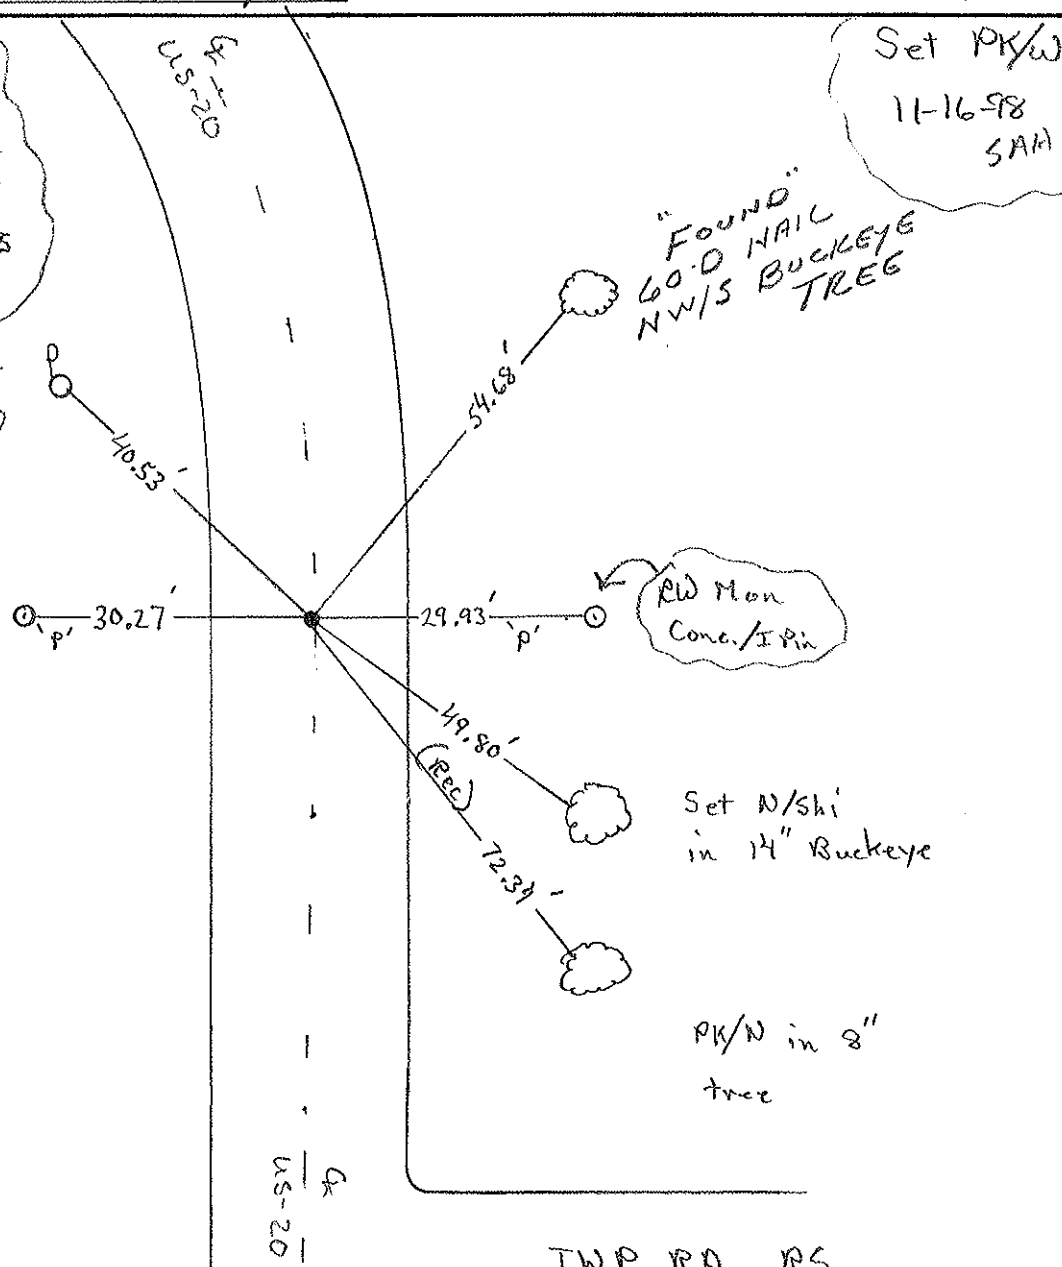 ℄
US-20
Set PK/W
11-16-98
SAH
"FOUND"
60·D NAIL
NW/S BUCKEYE
TREE
54.68'
40.53'
30.27'
'P'
29.93'
'P'
RW Mon
Conc./I Pin
49.80'
(Rec)
72.34'
Set N/Shi
in 14" Buckeye
PK/N in 8"
tree
℄
US-20
TWP RD